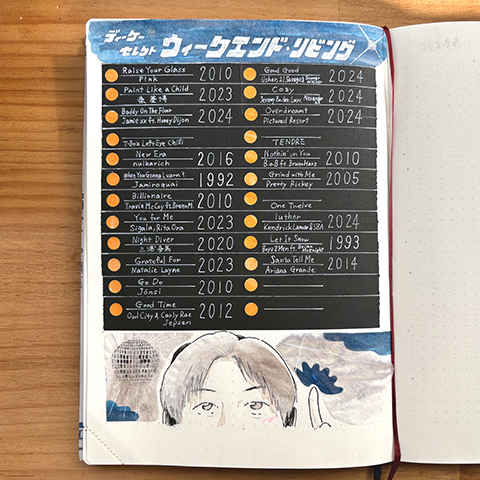 ディーケー
セレクト ウィークエンド・リビング
Raise Your Glass
P!nk 2010
Paint Like a Child
2023
Baddy On The Floor
Jamie xx ft. Honey Dijon 2024
T-Boz Left-Eye Chilli
New Era
nulbarich 2016
When You Gonna Learn?
Jamiroquai 1992
Billionaire
Travie McCoy ft. 2010
You for Me
Sigala, Rita Ora 2023
Night Diver
三浦春馬 2020
Grateful For
Natalie Layne 2023
Go Do
Jónsi 2010
Good Time
Owl City & Carly Rae
Jepsen 2012
Good Good
Usher, 21 Savage & Summer Walker 2024
Cozy
2024
Overdreamt
Pictured Resort 2024
TENDRE
Nothin' on You
B.o.B ft. Bruno Mars 2010
Grind with Me
Pretty Rickey 2005
One Twelve
luther
Kendrick Lamar & SZA 2024
Let It Snow
Boyz II Men ft. Brian McKnight 1993
Santa Tell Me
Ariana Grande 2014